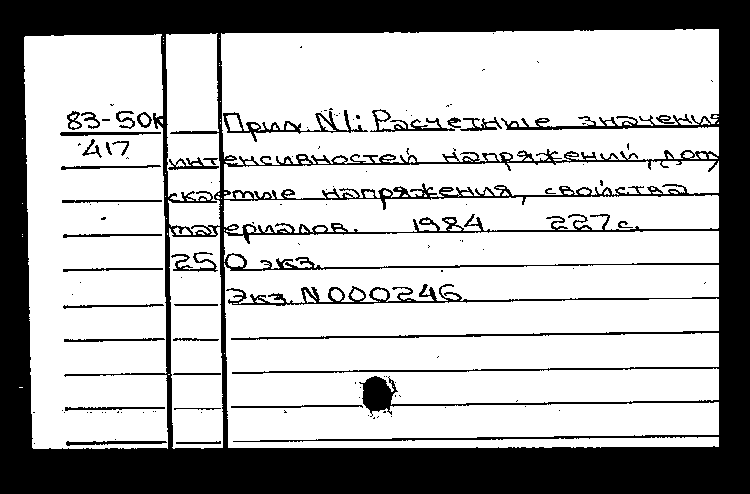 83-50к Прил. N1: Расчетные значения
417 интенсивностей напряжений, допу
скаемые напряжения, свойства
материалов. 1984. 227с.
250 экз.
Экз. N000246